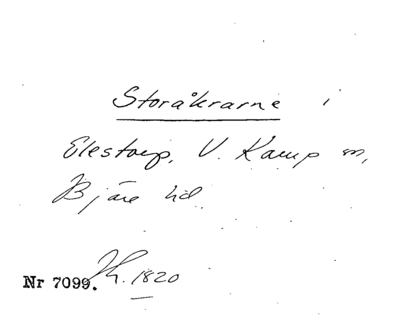 Storåkrarne i
Elestorp, V. Karup sn,
Bjäre hd.
Nr 7099. Kh. 1820